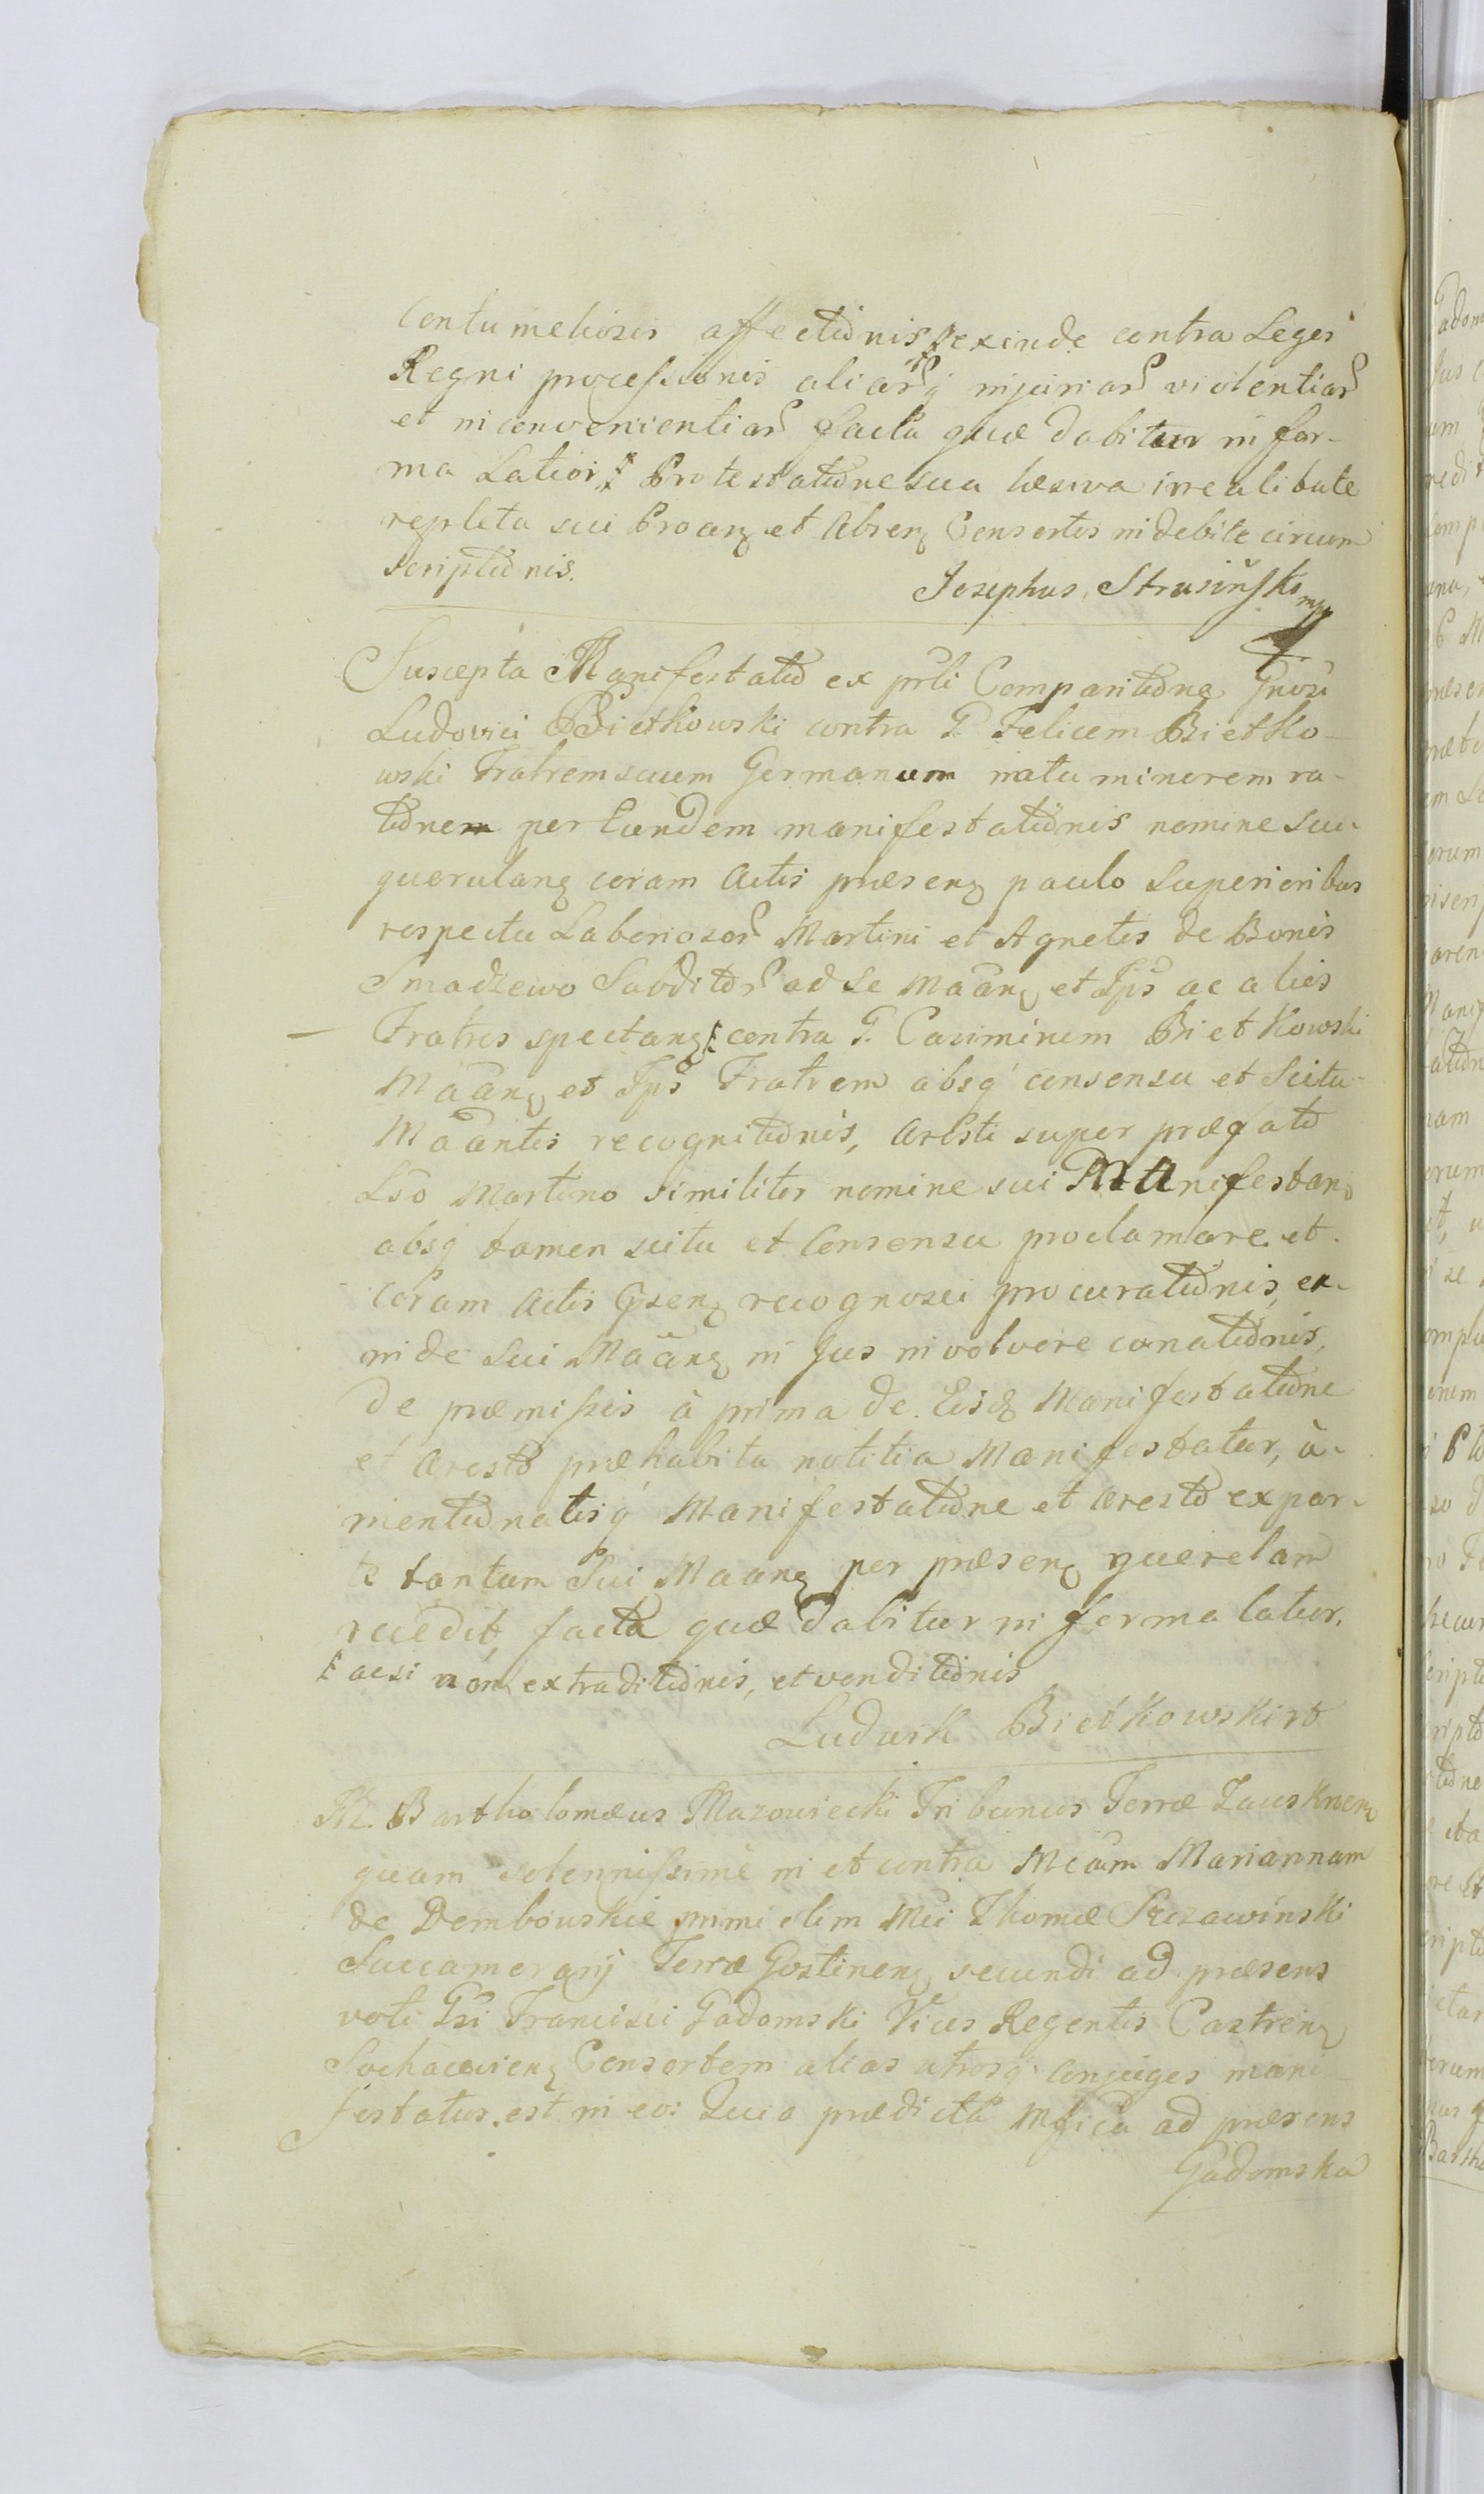 Contumeliosis affectionis, exinde contra Leges
Regni processionis aliarq injuriar violentiar
et inconvenientiar facta quæ dabitur in for-
ma Latiori Protestatione sua læsiva irrealitate
repleta sui Proan et Absen Consortis indebite circum
scriptionis.
Josephus Strusiński mp
Suscepta Manifestatio ex prli Comparitione Gnosi
Ludovici Bietkowski contra G. Felicem Bietko-
wski Fratrem suum Germanum natu minorem ra-
tione per Eundem manifestationis nomine suo
querulanę coram Actis præsenę paulo Superioribus
respectu Laboriosor Martini et Agnetis de Bonis
Smadzewo Subditor ad se Maanę et Ips ac alios
Fratres spectanę contra G. Casimirum Bietkowski
Maanę et Ips Fratrem absq consensu et Scitu
Maantis recognitionis, Aresti super præfato
Lso Martino similiter nomine sui Manifestan
absq tamen scitu et Consensu proclamare et
Coram Actis Psenę recognosci procurationis, ex-
inde Sui Maanę in Jus involvere conationis,
De præmissis à prima de Eisd Manifestatione
et Aresto præhabita notitia Manifestatur, à
mentionatisq Manifestatione et Aresto ex par-
te tantum Sui Maanę per præsenę querelam
recedit, facta quæ dabitur in forma latior.
ac si non extraditionis, et venditionis
Ludwik Bietkowski rt
M. Bartholomæus Mazowiecki Tribunus Terræ Zauskrnenę
quam solennissime in et contra Mcam Mariannam
de Dembowskie primi olim Mci Thomæ Skrzawinski
Succamerarij Terræ Gostinenę secundi ad præsens
voti Gsi Francisci Gadomski Vices Regentis Castrenę
Sochaczevienę Consortem alias utrosq conjuges mani-
festatus est in eo: Quia prædicta Mfica ad præsens
Gadomska